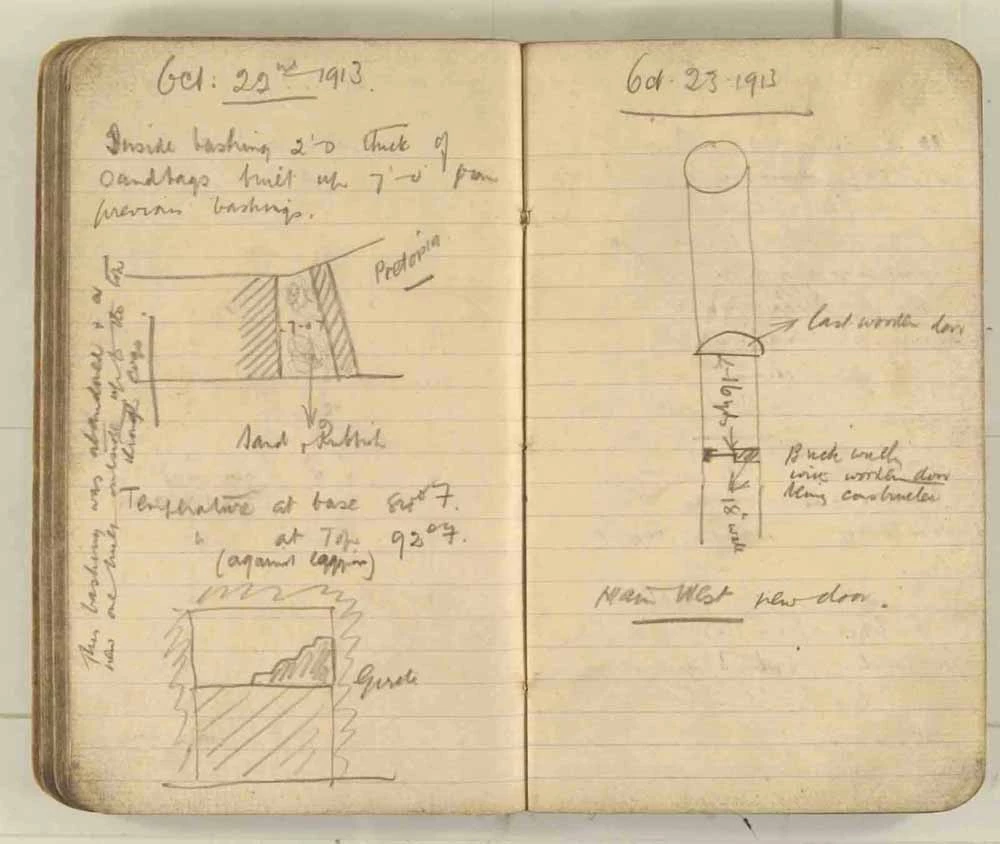 Oct: 22nd 1913.
Inside bashing 2'-0 thick of
Sandbags built up 7'-0" from
previous bashings.
Pretoria
7-0
Sand, Rubbish
Temperature at base 80°F.
" at Top 92°F.
(against lagging)
This bashing was abandoned & a
new one built outside up to the
through
Oct. 23 1913
Last wooden door
Brick wall
with wooden door
being constructed
18" wall
Main West new door.